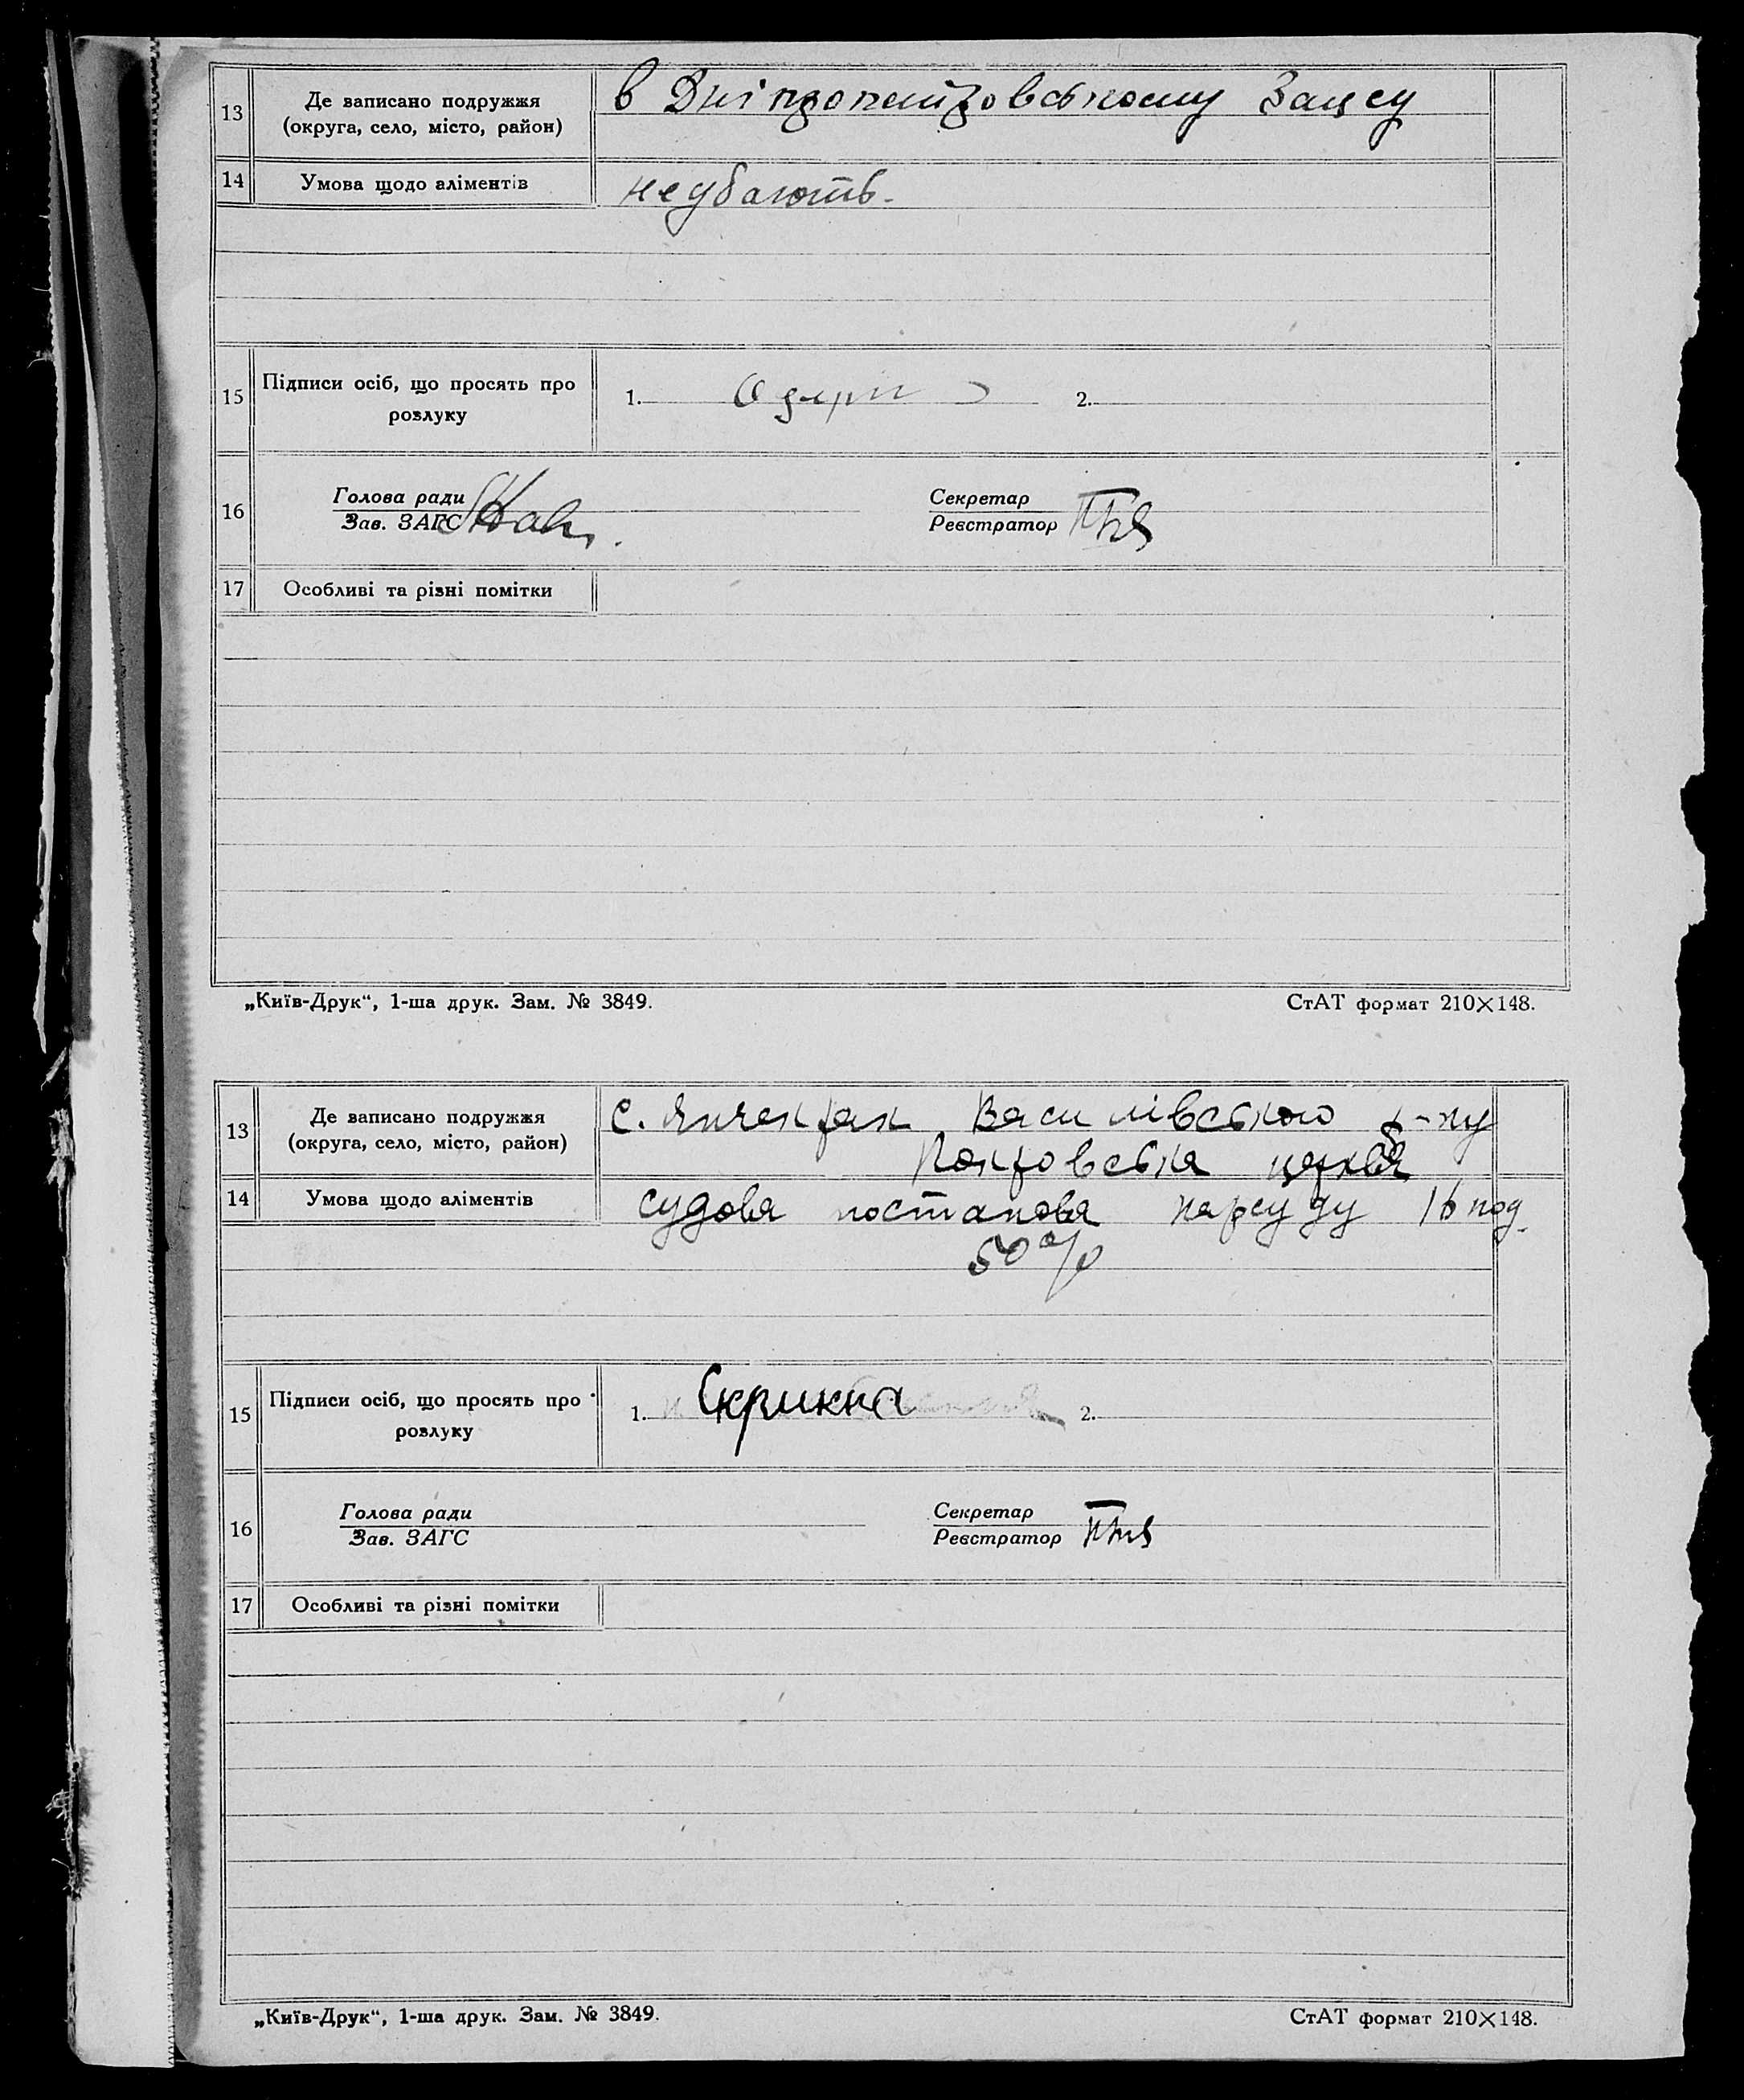 13 Де записано подружжя (округа, село, місто, район) в Дніпропетровському Загсу
14 Умова щодо аліментів
15 Підписи осіб, що просять про розлуку 1. 2.
16 Голова ради Секретар
Зав. ЗАГС Реєстратор
17 Особливі та різні помітки
„Київ-Друк“, 1-ша друк. Зам. № 3849. СтАТ формат 210×148.
13 Де записано подружжя (округа, село, місто, район) с. Василівського р-ну
церква
14 Умова щодо аліментів судова постанова нарсуду
50%
15 Підписи осіб, що просять про розлуку 1. 2.
16 Голова ради Секретар
Зав. ЗАГС Реєстратор
17 Особливі та різні помітки
„Київ-Друк“, 1-ша друк. Зам. № 3849. СтАТ формат 210×148.